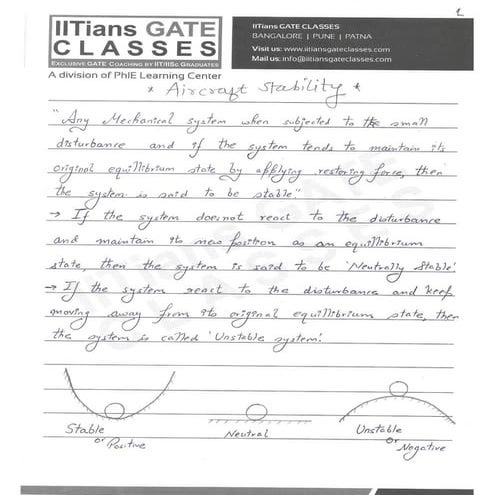 IITians GATE
CLASSES
EXCLUSIVE GATE COACHING BY IIT/IISc GRADUATES
A division of PhIE Learning Center
IITians GATE CLASSES
BANGALORE | PUNE | PATNA
Visit us: www.iitiansgateclasses.com
Mail us: info@iitiansgateclasses.com
1
* Aircraft Stability *
"Any Mechanical system when subjected to the small
disturbance and if the system tends to maintain its
original equillibrium state by applying restoring force, then
the system is said to be stable."
→ If the system doesnot react to the disturbance
and maintain its new position as an equillibrium
state, then the system is said to be 'Neutrally Stable'
→ If the system react to the disturbance and keep
moving away from its original equillibrium state, then
the system is called 'Unstable system'.
Stable
or Positive
Neutral
Unstable
or Negative
IITians GATE
CLASSES